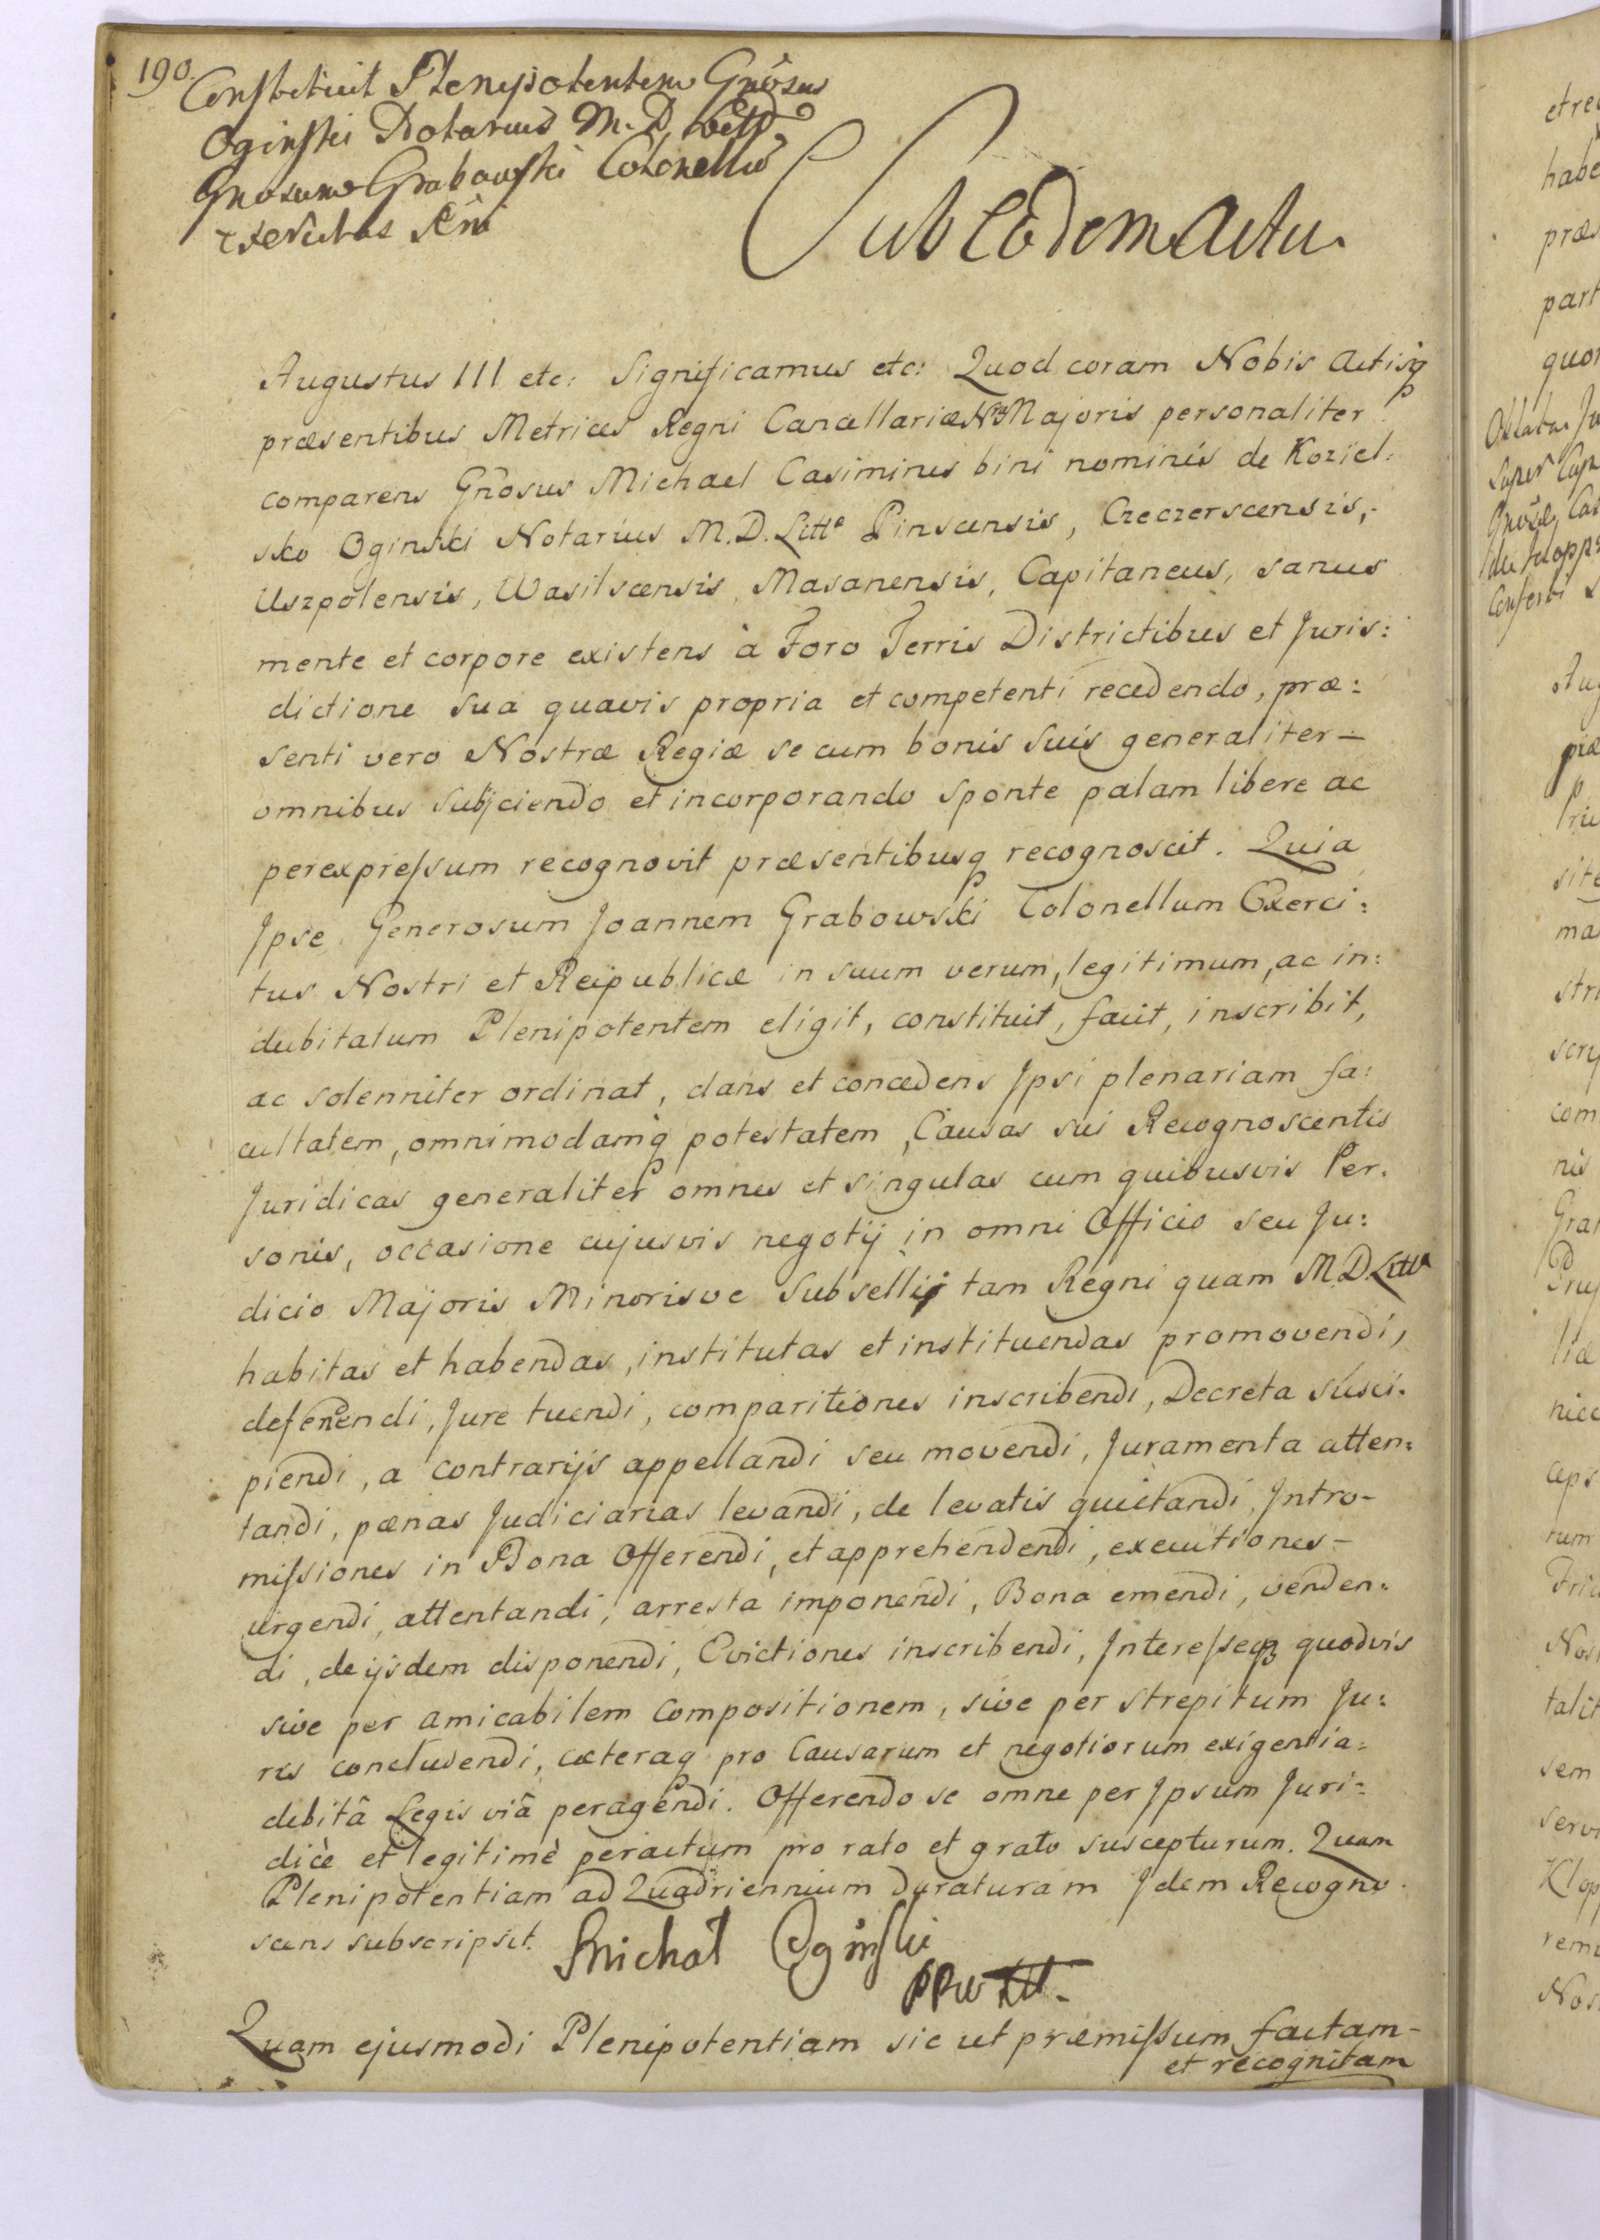 190.
Constituit Plenipotentem Gnosus
Oginski Notarius M. D. Litt.
Gnosum Grabowski Colonellum
Sub eodem Actu.
Augustus III etc: Significamus etc: Quod coram Nobis Actisq
præsentibus Metrices Regni Cancellariæ Nræ Majoris personaliter
comparens Gnosus Michael Casimirus bini nominis de Koziel:
sko Oginski Notarius M.D. Litt. Pinscensis, Czeczerscensis,
Uszpolensis, Wasilscensis, Masanensis, Capitaneus, sanus
mente et corpore existens à Foro Terris Districtibus et Juris:
dictione sua quavis propria et competenti recedendo, præ:
senti vero Nostræ Regiæ se cum bonis suis generaliter –
omnibus subijciendo et incorporando sponte palam libere ac
perexpressum recognovit præsentibusq recognoscit. Quia
Ipse Generosum Joannem Grabowski Colonellum Exerci:
tus Nostri et Reipublicæ in suum verum, legitimum, ac in:
dubitatum Plenipotentem eligit, constituit, facit, inscribit,
ac solenniter ordinat, dans et concedens Ipsi plenariam fa:
cultatem, omnimodamq potestatem, Causas sui Recognoscentis
Juridicas generaliter omnes et singulas cum quibusvis Per:
sonis, occasione cujusvis negotij in omni Officio seu Ju:
dicio Majoris Minorisve Subsellij tam Regni quam M.D. Litt.
habitas et habendas, institutas et instituendas promovendi,
defendendi, Jure tuendi, comparitiones inscribendi, Decreta susci:
piendi, a contrarijs appellandi seu movendi, Juramenta atten:
tandi, pœnas Judiciarias levandi, de levatis quietandi, Intro-
missiones in Bona Offerendi, et apprehendendi, executiones –
urgendi, attentandi, arresta imponendi, Bona emendi, venden:
di, de ijsdem disponendi, Evictiones inscribendi, Interesseq quodvis
sive per amicabilem compositionem, sive per strepitum Ju:
ris concludendi, cæteraq pro Causarum et negotiorum exigentia:
debitâ Legis viâ peragendi. Offerendo se omne per Ipsum Juri:
dicè et legitimè peractum pro rato et grato suscepturum. Quam
Plenipotentiam ad Quadriennium duraturam Idem Recogno:
scens subscripsit. Michał Oginski
PPW Lit.
Quam ejusmodi Plenipotentiam sic ut præmissum factam –
et recognitam